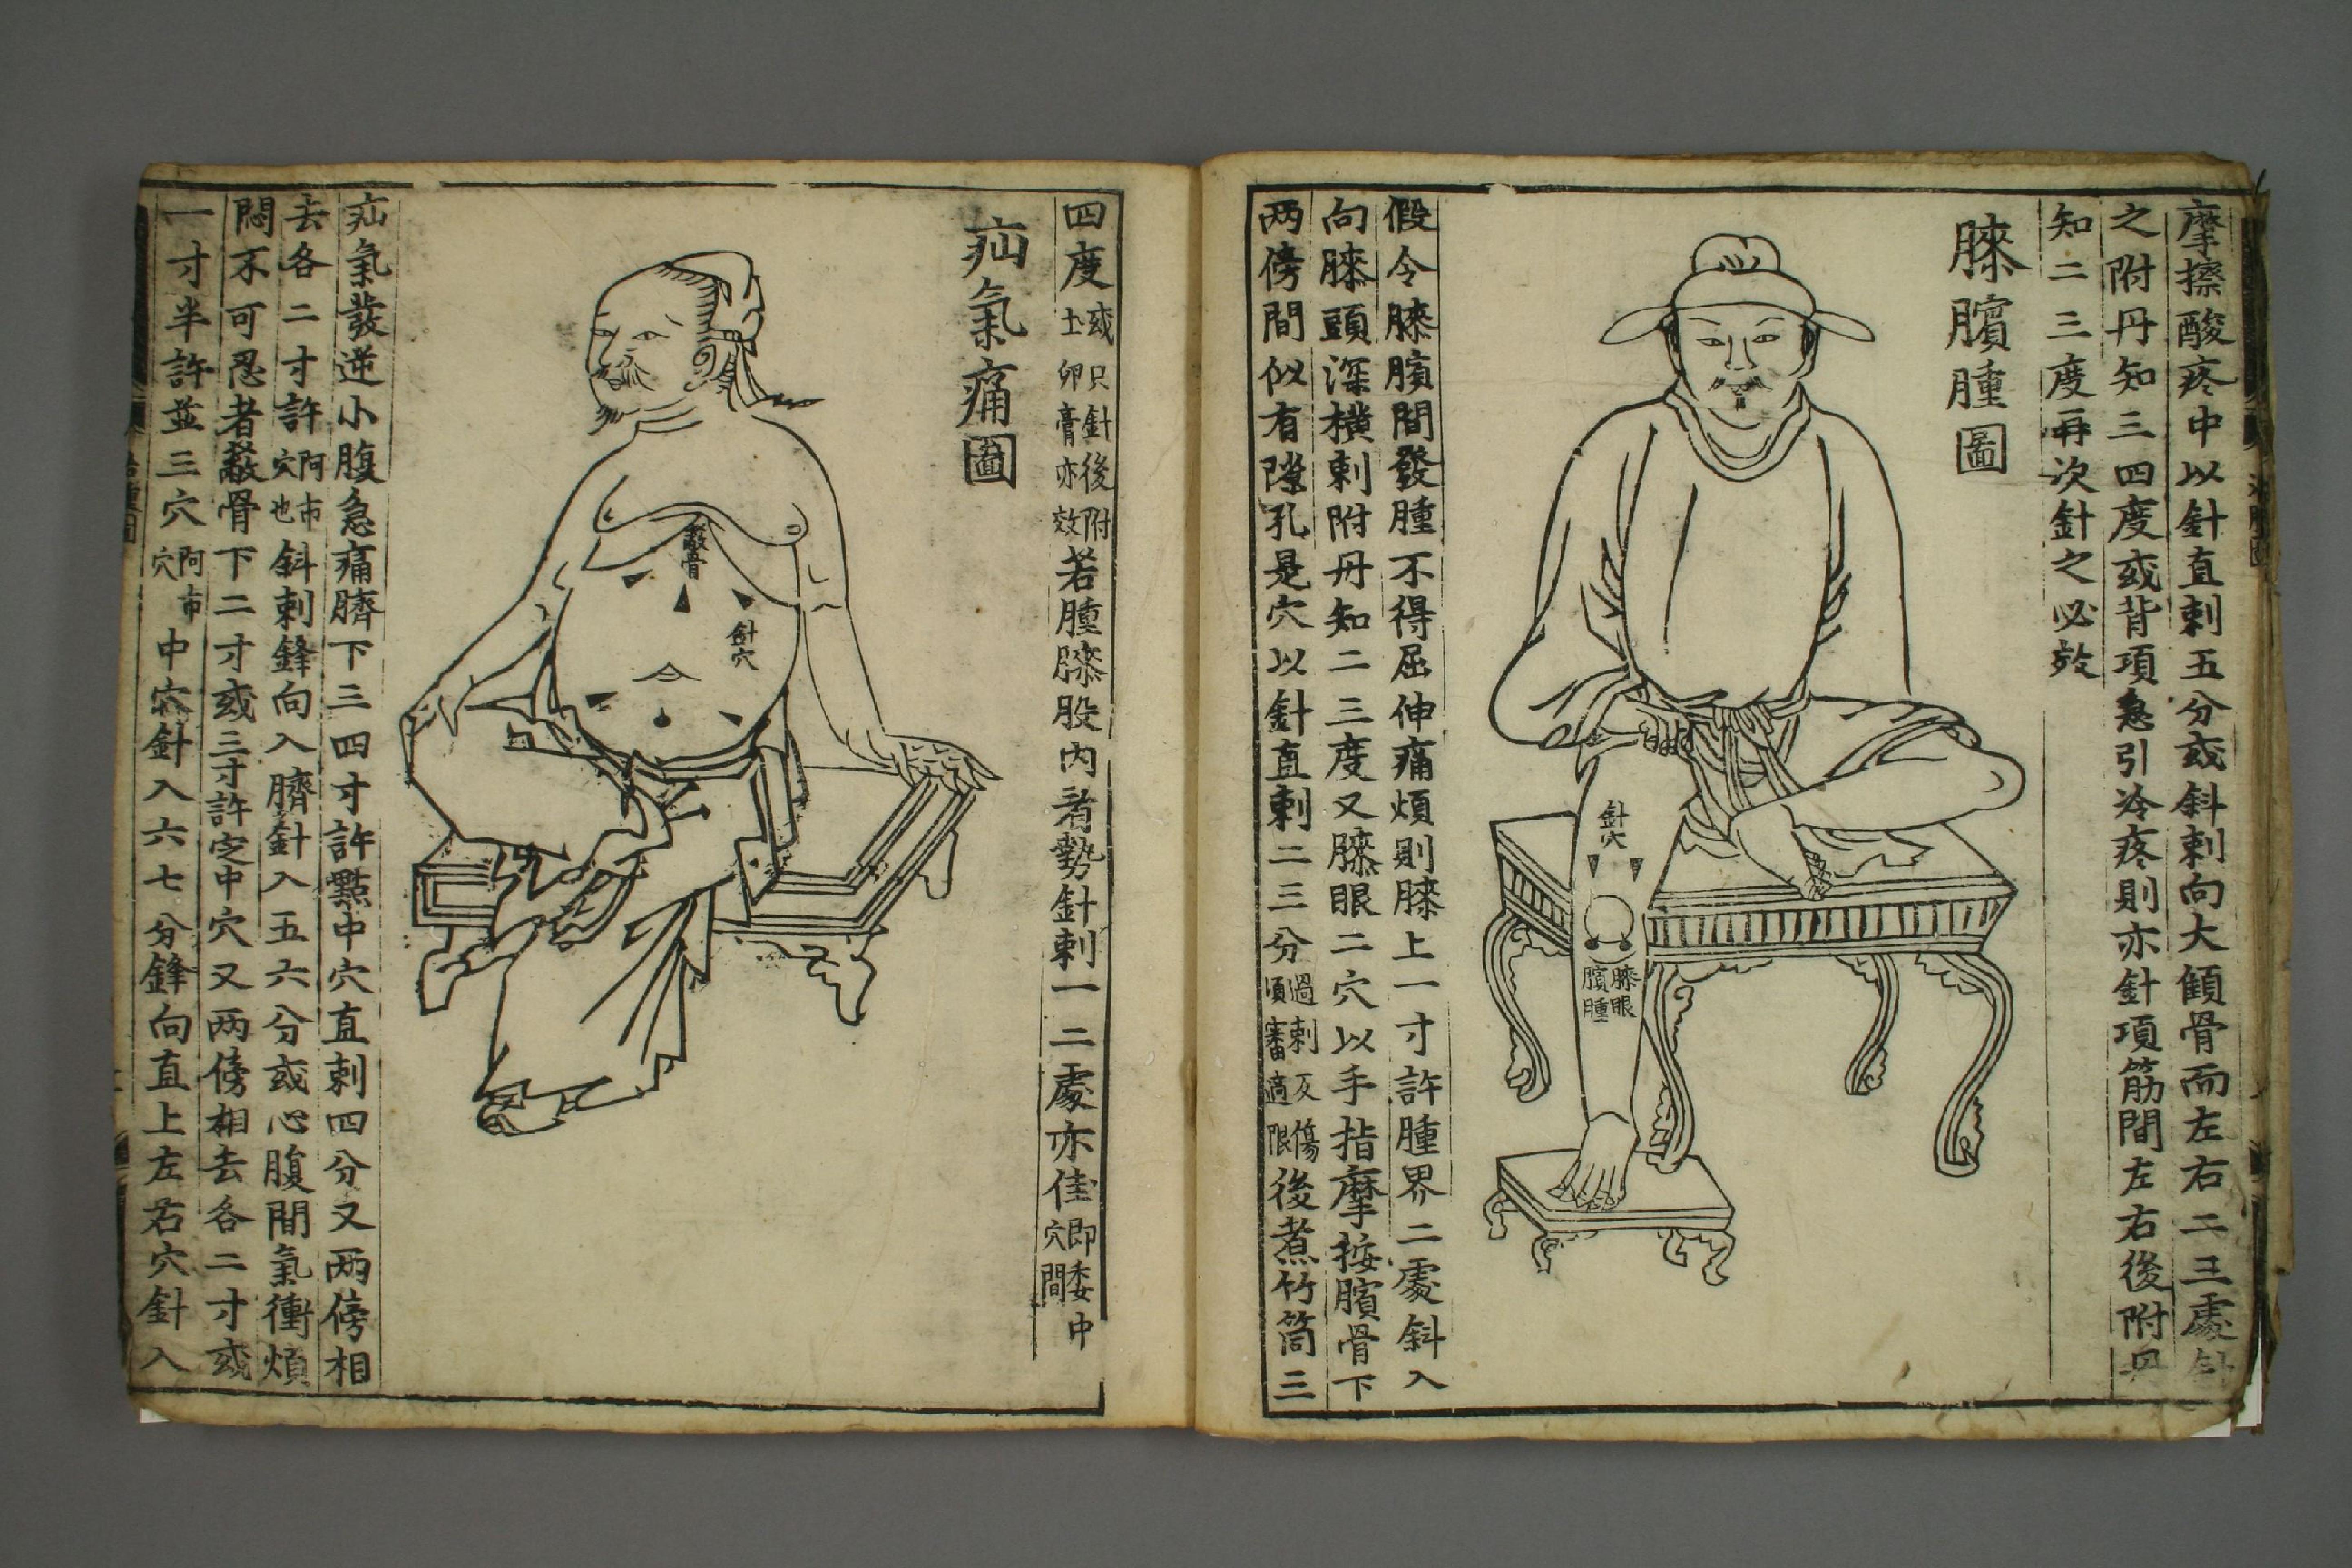 摩擦酸疼中以針直刺五分或斜刺向大傾骨而左右二三處針
之附丹知三四度或背項急引冷疼則亦針項筋間左右後附丹
知二三度再次針之必效
膝臏腫圖
針穴
膝眼
臏腫
假令膝臏間發腫不得屈伸痛煩則膝上一寸許腫界二處斜入
向膝頭深橫刺附丹知二三度又膝眼二穴以手指摩按臏骨下
两傍間似有隙孔是穴以針直刺二三分過刺反傷須審適限後煮竹筒三
四度或只針後附土卵膏亦效若腫膝股內着勢針刺一二處亦佳即委中穴間
疝氣痛圖
骨
針穴
疝氣發逆小腹急痛臍下三四寸許點中穴直刺四分又两傍相
去各二寸許阿市穴也斜刺鋒向入臍針入五六分或心腹間氣衝煩
悶不可忍者骨下二寸或三寸許定中穴又两傍相去各二寸或
一寸半許並三穴阿市穴中穴針入六七分鋒向直上左右穴針入